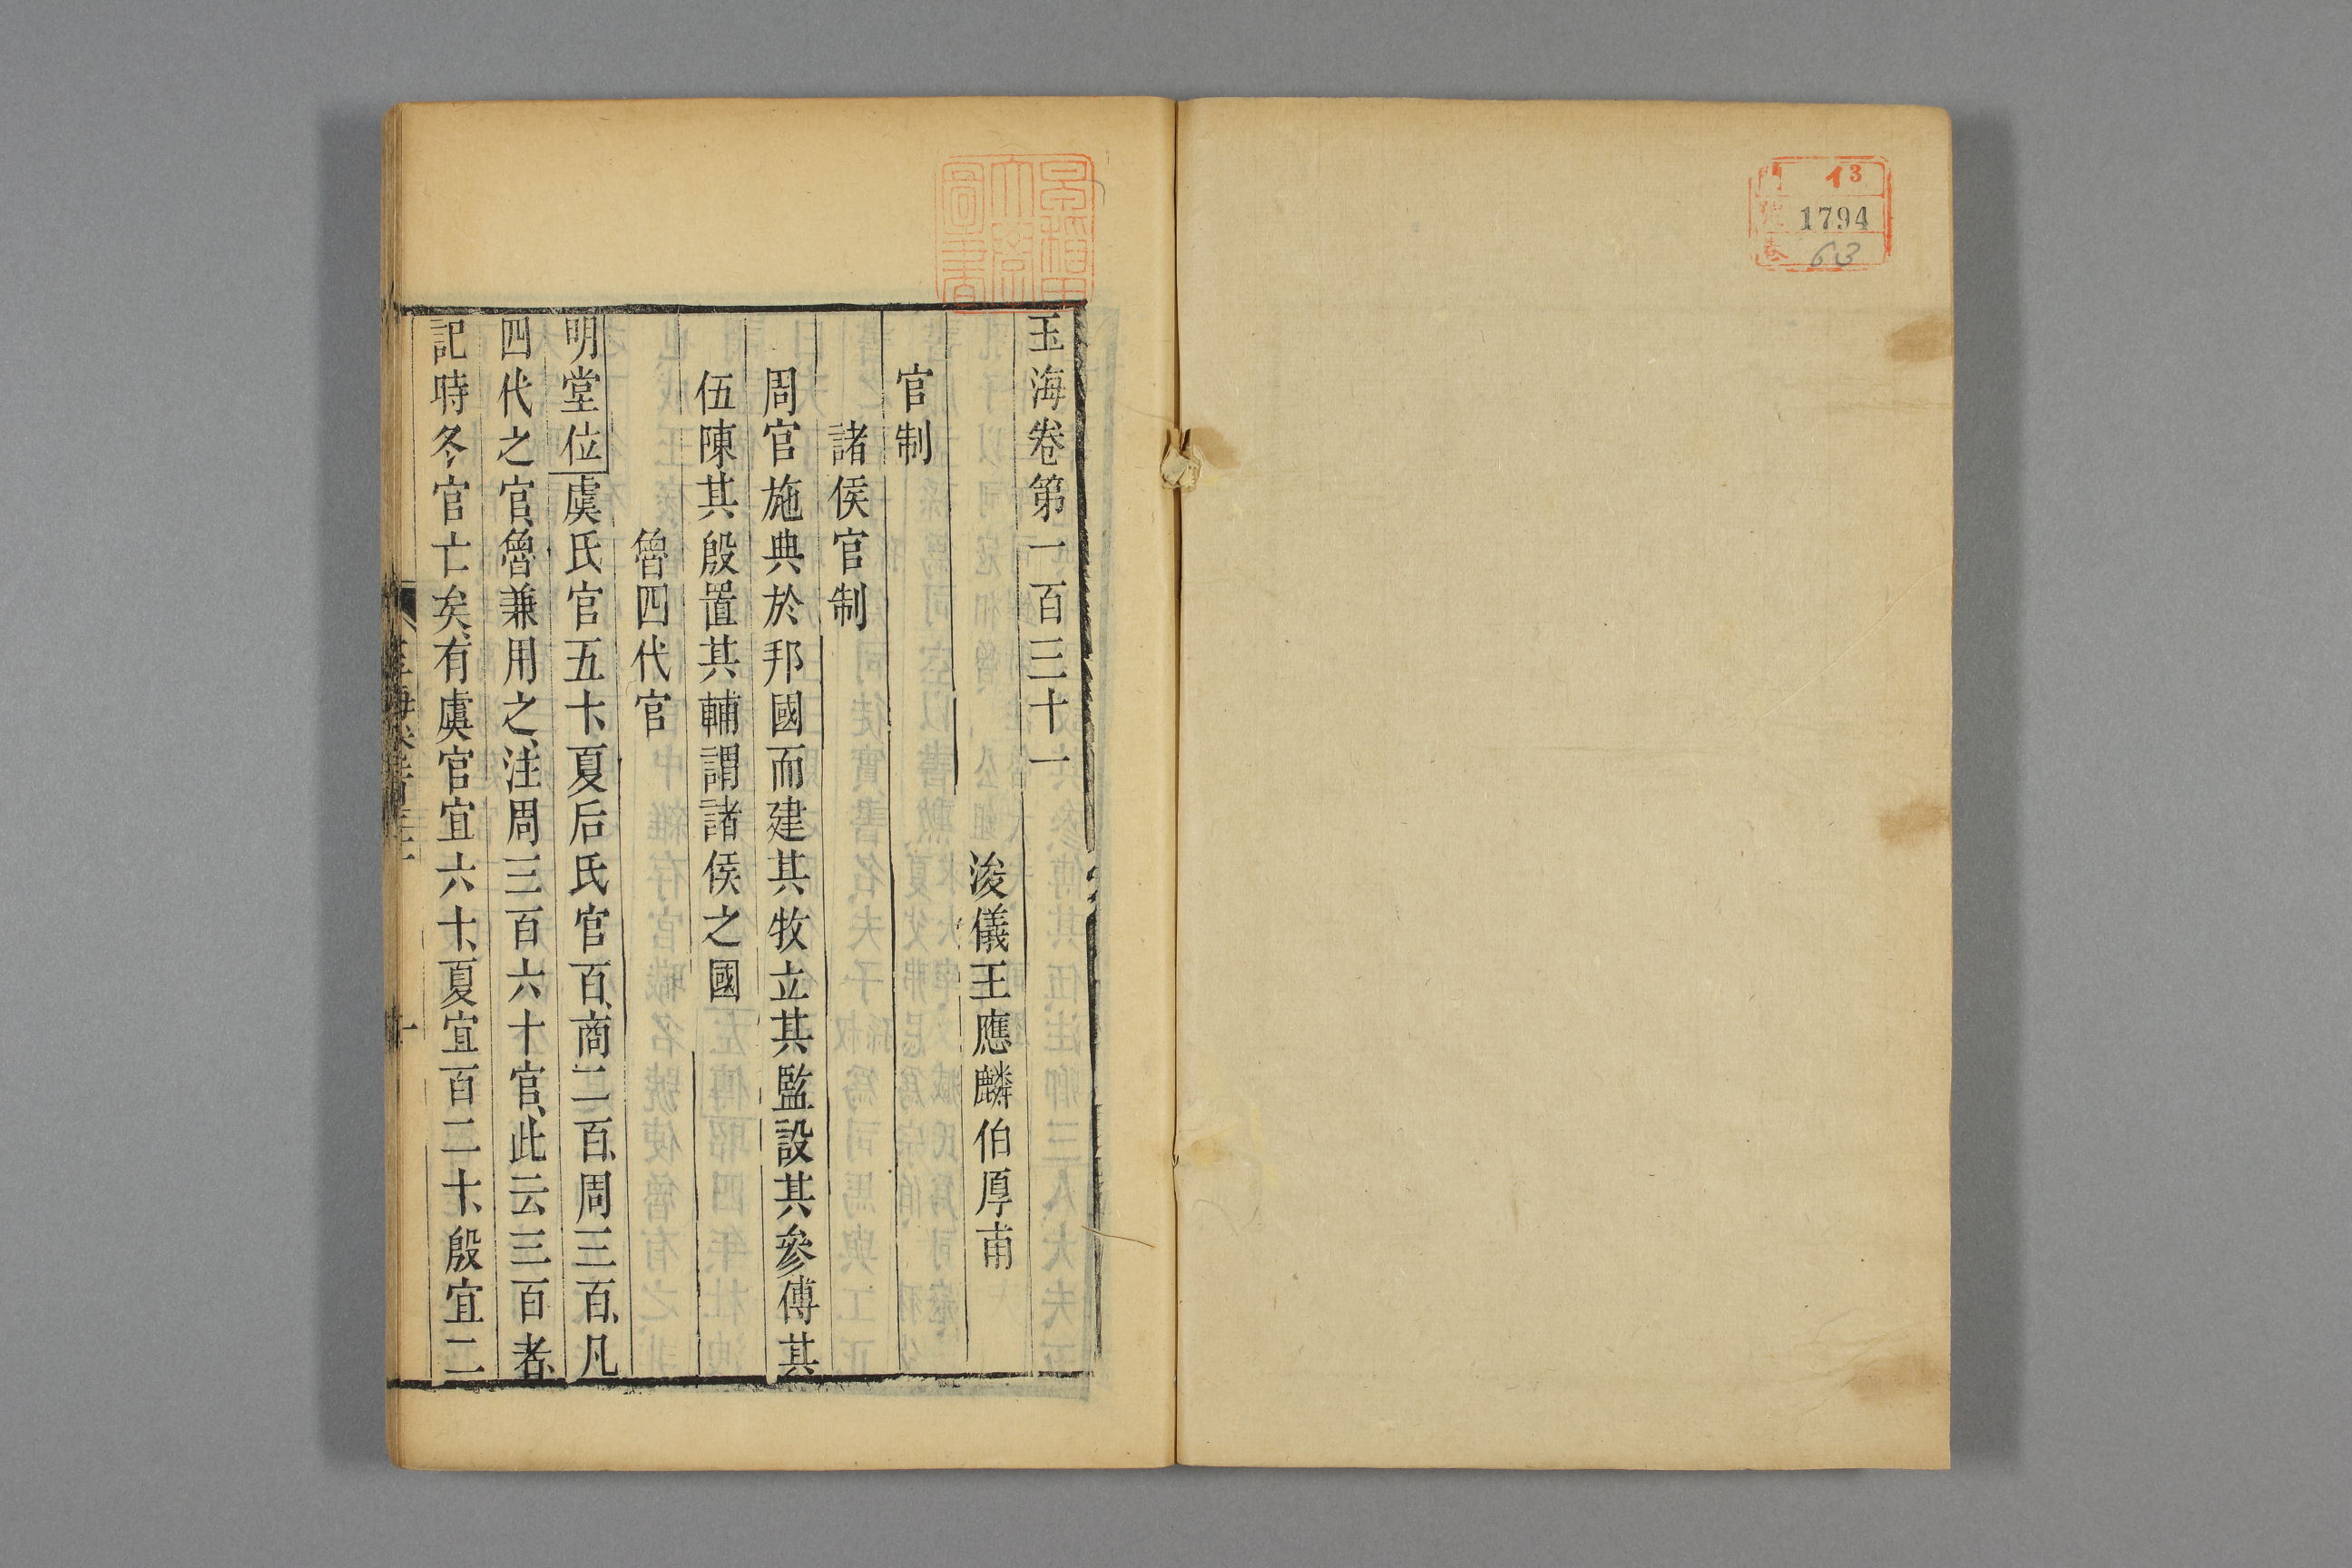 門 イ3
號 1794
卷 63
早稻田
大學
圖書
玉海卷第一百三十一
浚儀王應麟伯厚甫
官制
諸侯官制
周官施典於邦國而建其牧立其監設其參傅其
伍陳其殷置其輔謂諸侯之國
魯四代官
明堂位虞氏官五十、夏后氏官百、商二百、周三百、凡
四代之官、魯兼用之、注周三百六十官、此云三百者、
記時冬官亡矣、有虞官宜六十、夏宜百二十、殷宜二